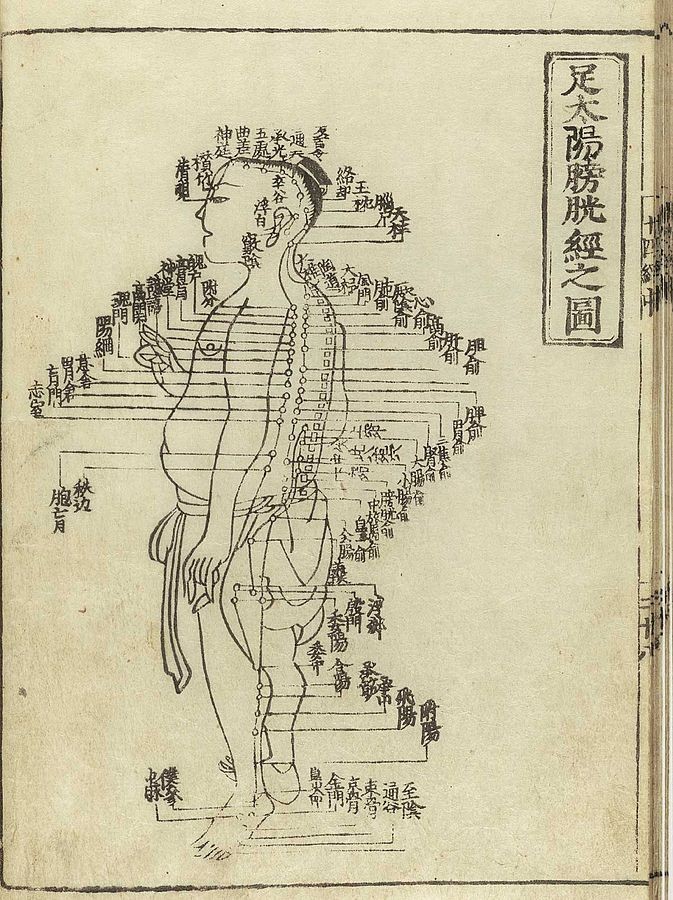 足太陽膀胱經之圖
絡却
玉枕
腦戶
天柱
通天
承光
五處
曲差
神廷
攅竹
睛明
率谷
浮白
竅陰
大杼
風門
肺俞
心俞
肝俞
胆俞
脾俞
胃俞
三焦俞
腎俞
大腸俞
小腸俞
膀胱俞
附分
魄戶
膏肓
神堂
譩譆
膈關
魂門
陽綱
意舍
胃倉
肓門
志室
秩边
胞肓
浮郄
殷門
委陽
委中
合陽
承筋
承山
飛陽
附陽
崑崙
金門
京骨
束骨
通谷
至陰
僕參
申脉